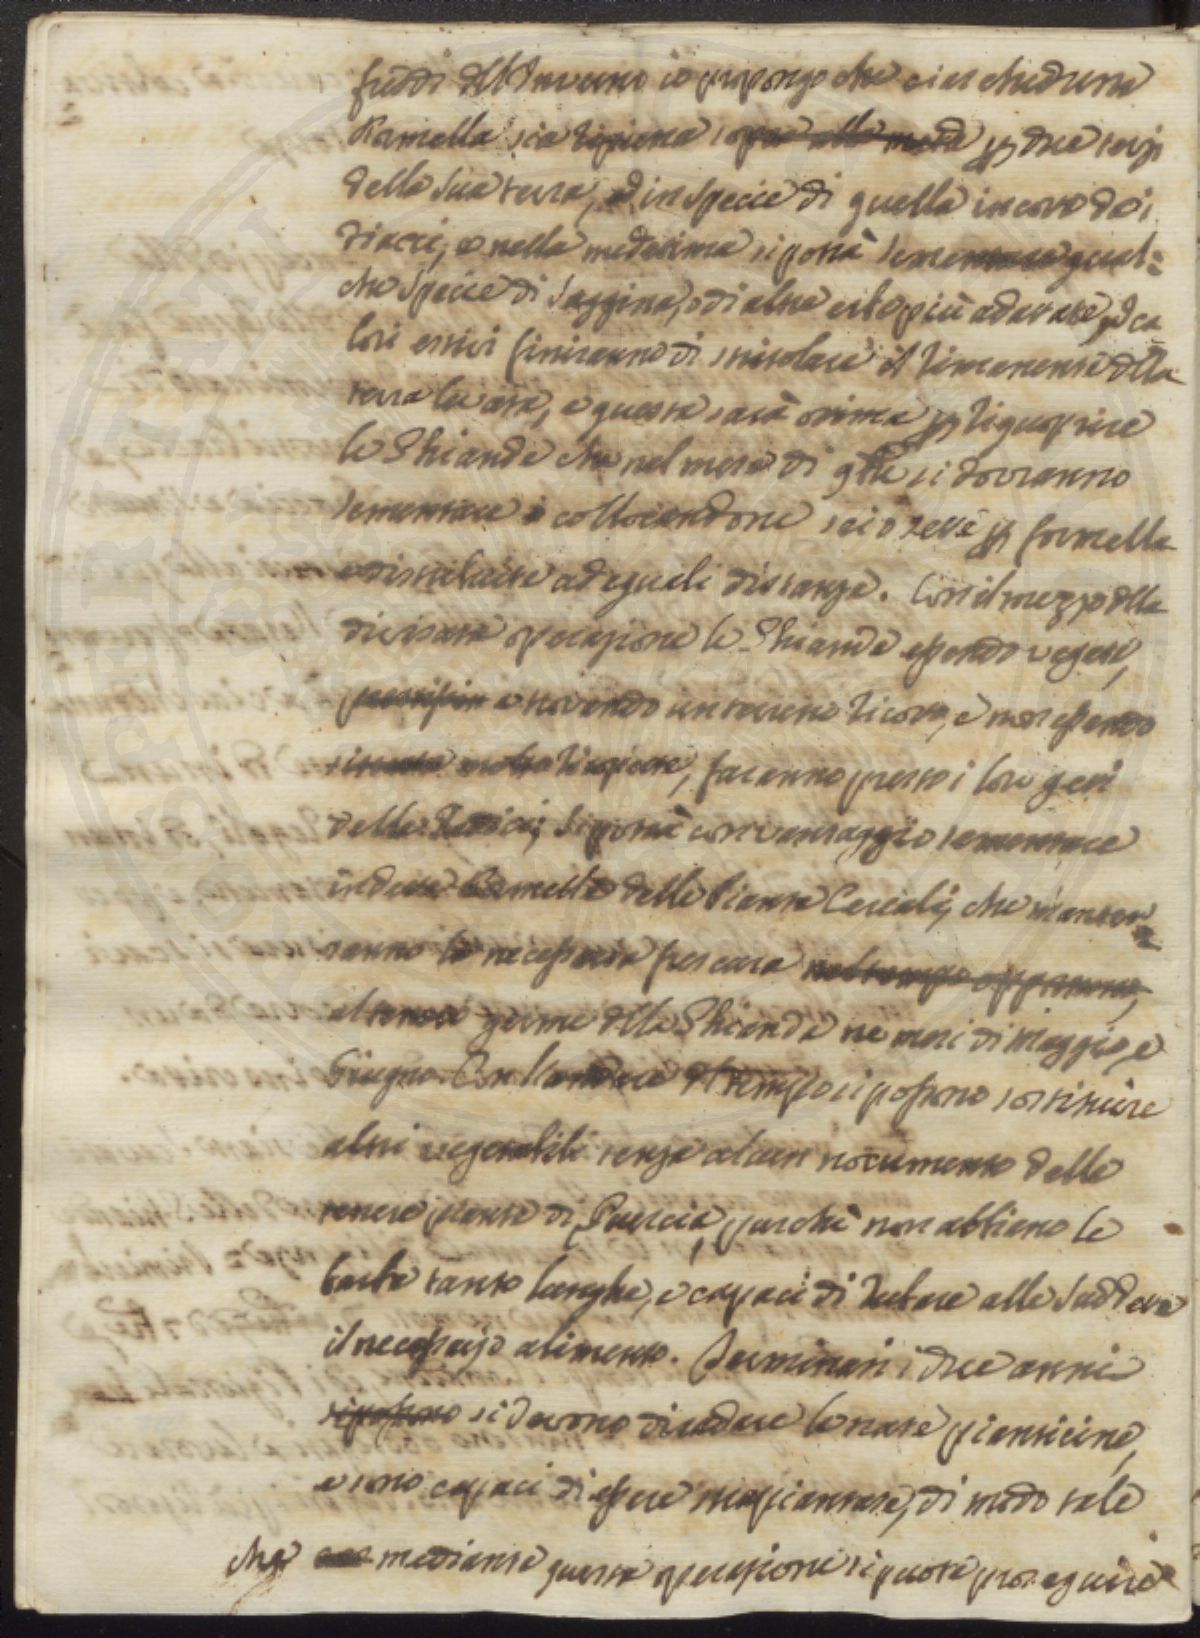 freddi dell'Inverno io propongo che ciascheduna
Formella sia ripiena sopra alla metà p due terzi
della sua terra, ed in specie di quella incorso dai
Diacci, e nella medesima si potrà sementare qual=
che specie di Saggina, o di altre erbe più adattate, ed ca
lori estivi finiranno di stritolare il rimanente della
terra lavorata, e questa sarà ottima p ricuoprire
le Ghiande che nel mese di 9bre si dovranno
sementare collocandone sei o sette p formella
e distribuite ad eguali distanze. Con il mezzo della
divisata operazione le Ghiande essendo vegete,
e trovando un terreno ricotto, e non essendo
molto ripiene, faranno presto i loro geti
delle Radici; Si potrà con vantaggio sementare
in dette Formelle delle Piante Cereali, che manter=
ranno la necessaria frescura nel tempo opportuno,
al tenero germe della Ghianda ne mesi di Maggio, e
Giugno. Con l'andare del tempo si possono sostituire
altri vegetabili senza alcun nocumento delle
tenere piante di Quercia, purchè non abbiano le
barbe tanto lunghe, e capaci di rubare alle Suddette
il necessario alimento. Terminati i due anni
si possono si devono diradare le nate pianticine,
e sono capaci di essere trapiantate, di modo tale
che mediante questa operazione si potrà proseguire